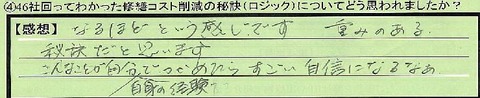 ④46社回ってわかった修繕コスト削減の秘訣（ロジック）についてどう思われましたか？
【感想】なるほどという感じです 重みのある
秘訣だと思います
こんなことが自分でつかめたらすごい自信になるなあ
自身の経験で